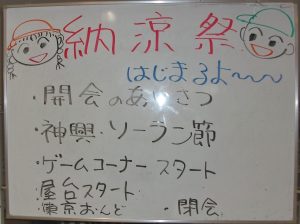 納涼祭
はじまるよ〜〜〜
・開会のあいさつ
・神輿・ソーラン節
・ゲームコーナー スタート
・屋台スタート
・東京おんど ・閉会